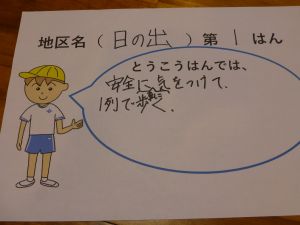 地区名（日の出）第1はん
とうこうはんでは、
安全に気をつけて、
1列で歩く。